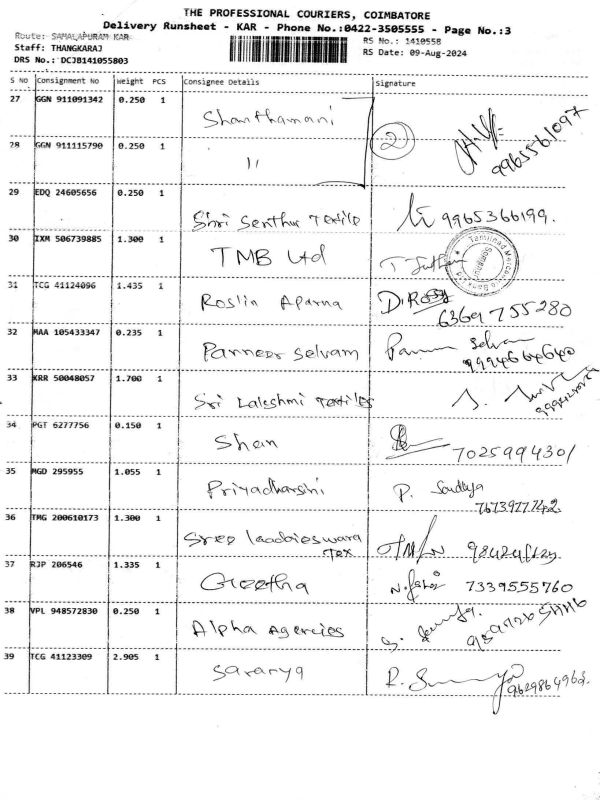 THE PROFESSIONAL COURIERS, COIMBATORE
Delivery Runsheet - KAR - Phone No.:0422-3505555 - Page No.:3
Route: SAMALAPURAM KAR
RS No.: 1410558
Staff: THANGKARAJ
RS Date: 09-Aug-2024
DRS No.: DCJB141055803
S NO Consignment No Weight PCS Consignee Details Signature
27 GGN 911091342 0.250 1 Shanthamani
28 GGN 911115790 0.250 1 " 2 9965561097
29 EDQ 24605656 0.250 1 Shri Senthur Textile 9965366199.
30 IXM 506739885 1.300 1 TMB Ltd
31 TCG 41124096 1.435 1 Roslin Aparna D. Rosy 6369755280
32 MAA 105433347 0.235 1 Panneer Selvam Selvam 9994664640
33 KRR 50048057 1.700 1 Sri Lakshmi Textiles
34 PGT 6277756 0.150 1 Shan 7025994301
35 MGD 295955 1.055 1 Priyadharsini P. Sandhya
36 TMG 200610173 1.300 1 Sree
Tex
37 RJP 206546 1.335 1 Geetha 7339555760
38 VPL 948572830 0.250 1 Alpha Agencies
39 TCG 41123309 2.905 1 Sararya R.